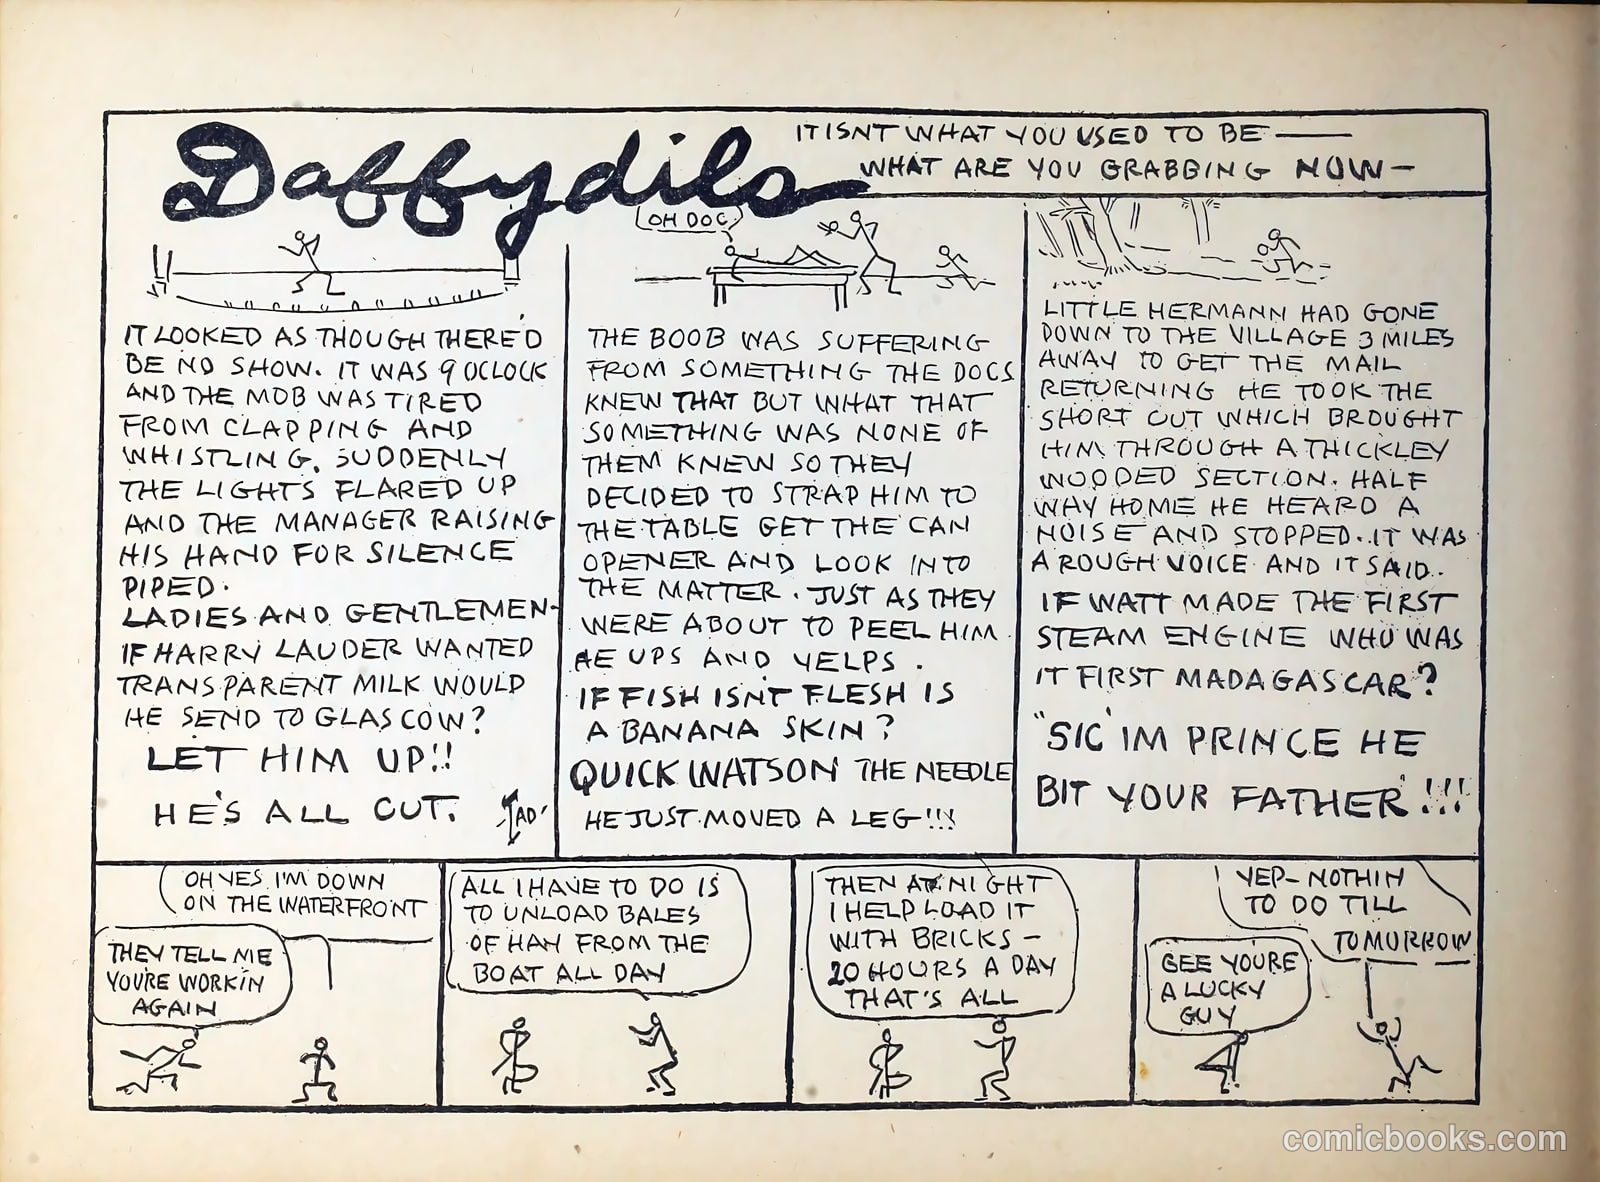 Daffydils
IT ISNT WHAT YOU USED TO BE —
WHAT ARE YOU GRABBING NOW —
IT LOOKED AS THOUGH THERE'D
BE NO SHOW. IT WAS 9 OCLOCK
AND THE MOB WAS TIRED
FROM CLAPPING AND
WHISTLING. SUDDENLY
THE LIGHTS FLARED UP
AND THE MANAGER RAISING
HIS HAND FOR SILENCE
PIPED.
LADIES AND GENTLEMEN-
IF HARRY LAUDER WANTED
TRANSPARENT MILK WOULD
HE SEND TO GLASCOW?
LET HIM UP!!
HE'S ALL CUT.
TAD
OH DOC
THE BOOB WAS SUFFERING
FROM SOMETHING THE DOCS
KNEW THAT BUT WHAT THAT
SOMETHING WAS NONE OF
THEM KNEW SO THEY
DECIDED TO STRAP HIM TO
THE TABLE GET THE CAN
OPENER AND LOOK INTO
THE MATTER. JUST AS THEY
WERE ABOUT TO PEEL HIM
HE UPS AND YELPS.
IF FISH ISNT FLESH IS
A BANANA SKIN?
QUICK WATSON THE NEEDLE
HE JUST MOVED A LEG!!!
LITTLE HERMANN HAD GONE
DOWN TO THE VILLAGE 3 MILES
AWAY TO GET THE MAIL
RETURNING HE TOOK THE
SHORT CUT WHICH BROUGHT
HIM THROUGH A THICKLEY
WOODED SECTION. HALF
WAY HOME HE HEARD A
NOISE AND STOPPED..IT WAS
A ROUGH VOICE AND IT SAID..
IF WATT MADE THE FIRST
STEAM ENGINE WHO WAS
IT FIRST MADAGASCAR?
"SIC'IM PRINCE HE
BIT YOUR FATHER'!!!
OH YES I'M DOWN
ON THE WATERFRONT
THEY TELL ME
YOU'RE WORKIN
AGAIN
ALL I HAVE TO DO IS
TO UNLOAD BALES
OF HAY FROM THE
BOAT ALL DAY
THEN AT NIGHT
I HELP LOAD IT
WITH BRICKS —
20 HOURS A DAY
THAT'S ALL
YEP- NOTHIN
TO DO TILL
TOMURROW
GEE YOURE
A LUCKY
GUY
comicbooks.com